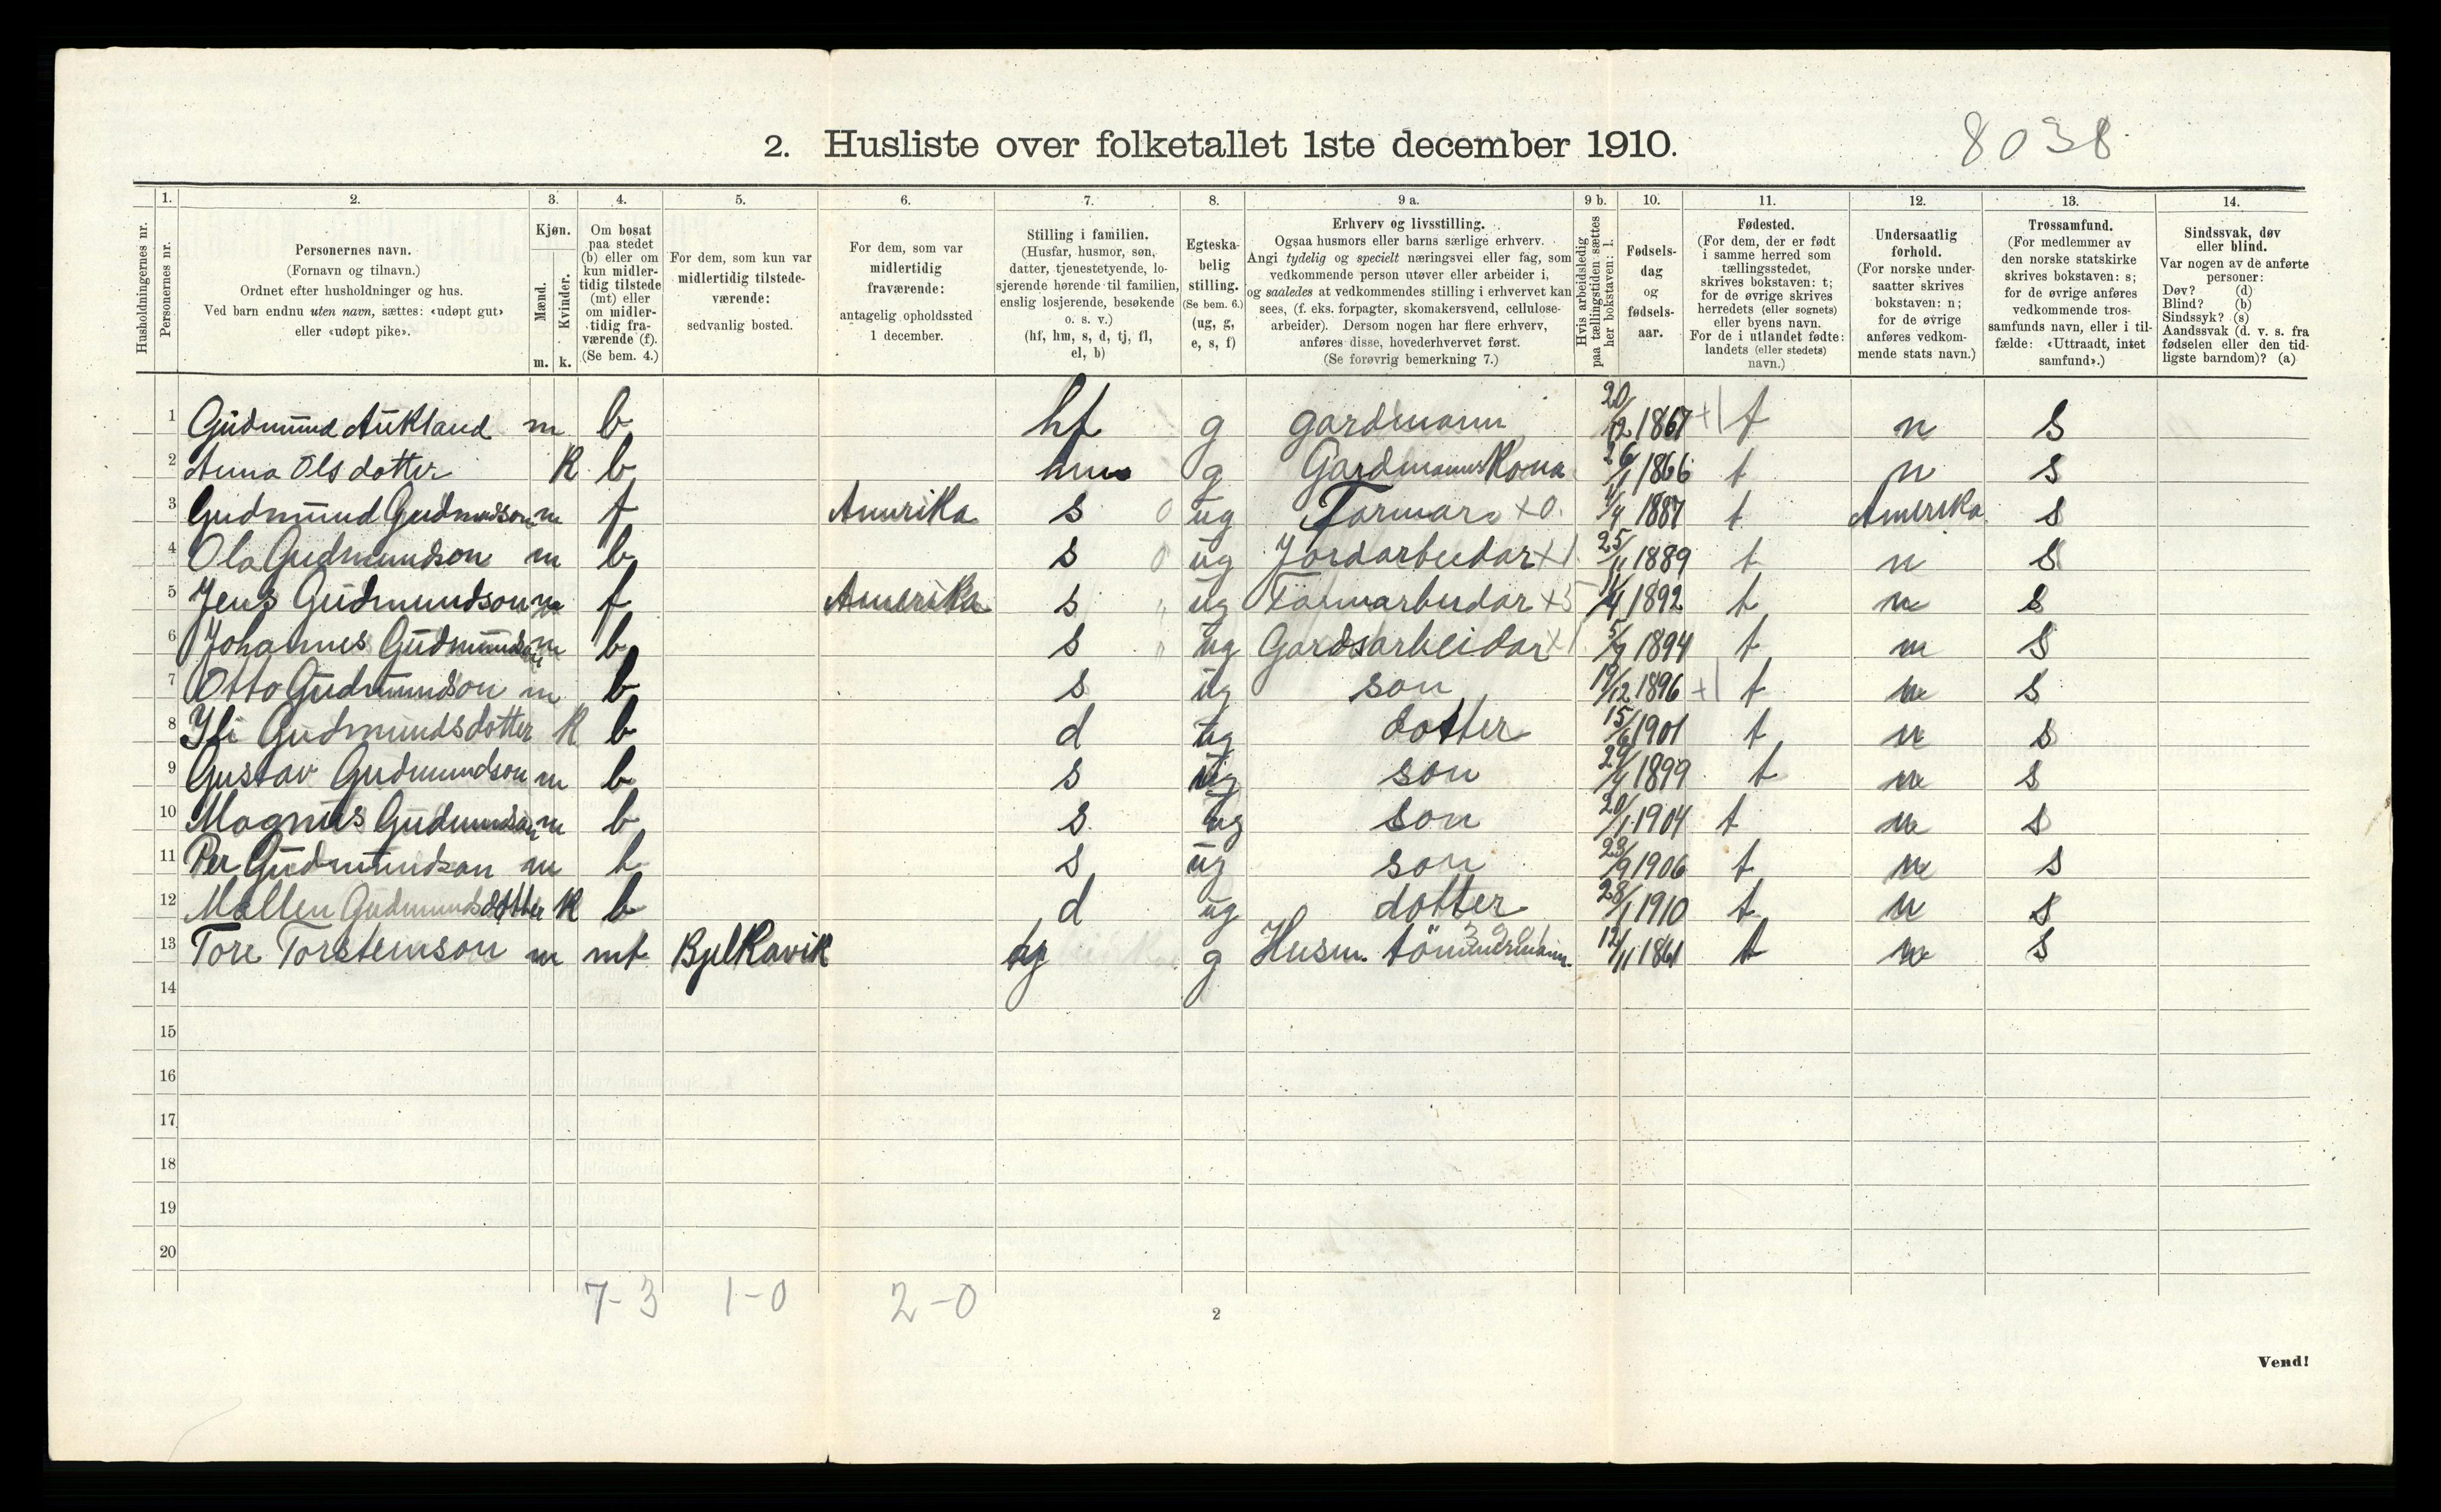 2. Husliste over folketallet 1ste december 1910.
8038
Husholdningernes nr.
1. Personernes nr.
2. Personernes navn. (Fornavn og tilnavn.) Ordnet efter husholdninger og hus. Ved barn endnu uten navn, sættes: «udøpt gut» eller «udøpt pike».
3. Kjøn. Mænd. m. Kvinder. k.
4. Om bosat paa stedet (b) eller om kun midlertidig tilstede (mt) eller om midlertidig fraværende (f). (Se bem. 4.)
5. For dem, som kun var midlertidig tilstedeværende: sedvanlig bosted.
6. For dem, som var midlertidig fraværende: antagelig opholdssted 1 december.
7. Stilling i familien. (Husfar, husmor, søn, datter, tjenestetyende, losjerende hørende til familien, enslig losjerende, besøkende o. s. v.) (hf, hm, s, d, tj, fl, el, b)
8. Egteskabelig stilling. (Se bem. 6.) (ug, g, e, s, f)
9 a. Erhverv og livsstilling. Ogsaa husmors eller barns særlige erhverv. Angi tydelig og specielt næringsvei eller fag, som vedkommende person utøver eller arbeider i, og saaledes at vedkommendes stilling i erhvervet kan sees, (f. eks. forpagter, skomakersvend, cellulosearbeider). Dersom nogen har flere erhverv, anføres disse, hovederhvervet først. (Se forøvrig bemerkning 7.)
9 b. Hvis arbeidsledig paa tællingstiden sættes her bokstaven: l.
10. Fødselsdag og fødselsaar.
11. Fødested. (For dem, der er født i samme herred som tællingsstedet, skrives bokstaven: t; for de øvrige skrives herredets (eller sognets) eller byens navn. For de i utlandet fødte: landets (eller stedets) navn.)
12. Undersaatlig forhold. (For norske undersaatter skrives bokstaven: n; for de øvrige anføres vedkommende stats navn.)
13. Trossamfund. (For medlemmer av den norske statskirke skrives bokstaven: s; for de øvrige anføres vedkommende trossamfunds navn, eller i tilfælde: «Uttraadt, intet samfund».)
14. Sindssvak, døv eller blind. Var nogen av de anførte personer: Døv? (d) Blind? (b) Sindssyk? (s) Aandssvak (d. v. s. fra fødselen eller den tidligste barndom)? (a)
1 Gudmund Aukland m b hf g gardmann 20/12 1867 +1 t n S
2 Anna Olsdotter K b hm g Gardmannskona 26/1 1866 t n S
3 Gudmund Gudmundson m f Amerika s 0 ug Farmar x0. 1887 t Amerika s
4 Ola Gudmundson m b s 0 ug Jordarbeidar x1 25/11 1889 t n S
5 Jens Gudmundson m f Amerika s " ug Farmarbeidar x5 1892 t n s
6 Johannes Gudmundson m b s " ug Gardsarbeidar x1 1894 t n S
7 Otto Gudmundson m b s ug son 19/12 1896 +1 t n S
8 Gudmundsdotter K b d ug dotter 15/6 1901 t n S
9 Gustav Gudmundson m b s ug son 29/4 1899 t n S
10 Magnus Gudmundson m b s ug son 20/1 1904 t n S
11 Per Gudmundson m b s ug son 23/9 1906 t n S
12 Mallen Gudmundsdotter K b d ug dotter 28/1 1910 t n S
13 Tore Torsteinson m mt Bjelkavik g Husm. tömmermann. 12/11 1861 t n S
14
15
16
17
18
19
20
7-3 1-0 2-0
2
Vend!